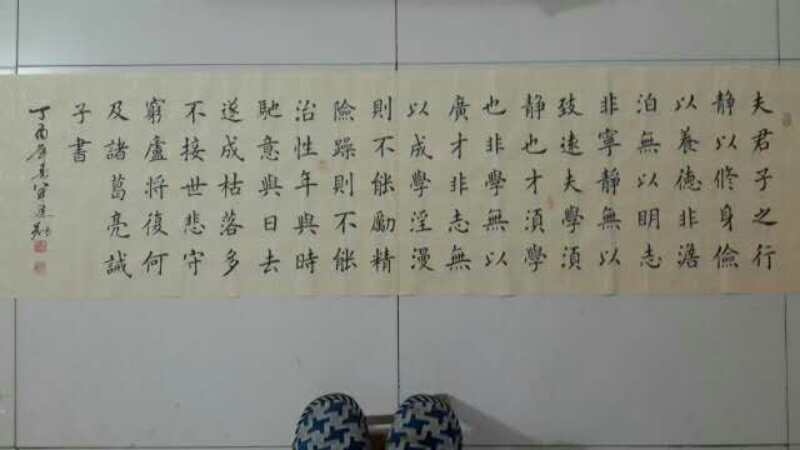 夫君子之行
静以修身儉
以養德非澹
泊無以明志
非寧静無以
致遠夫學須
静也才須學
也非學無以
廣才非志無
以成學淫漫
則不能勵精
險躁則不能
治性年與時
馳意與日去
遂成枯落多
不接世悲守
窮盧將復何
及諸葛亮誡
子書
丁酉